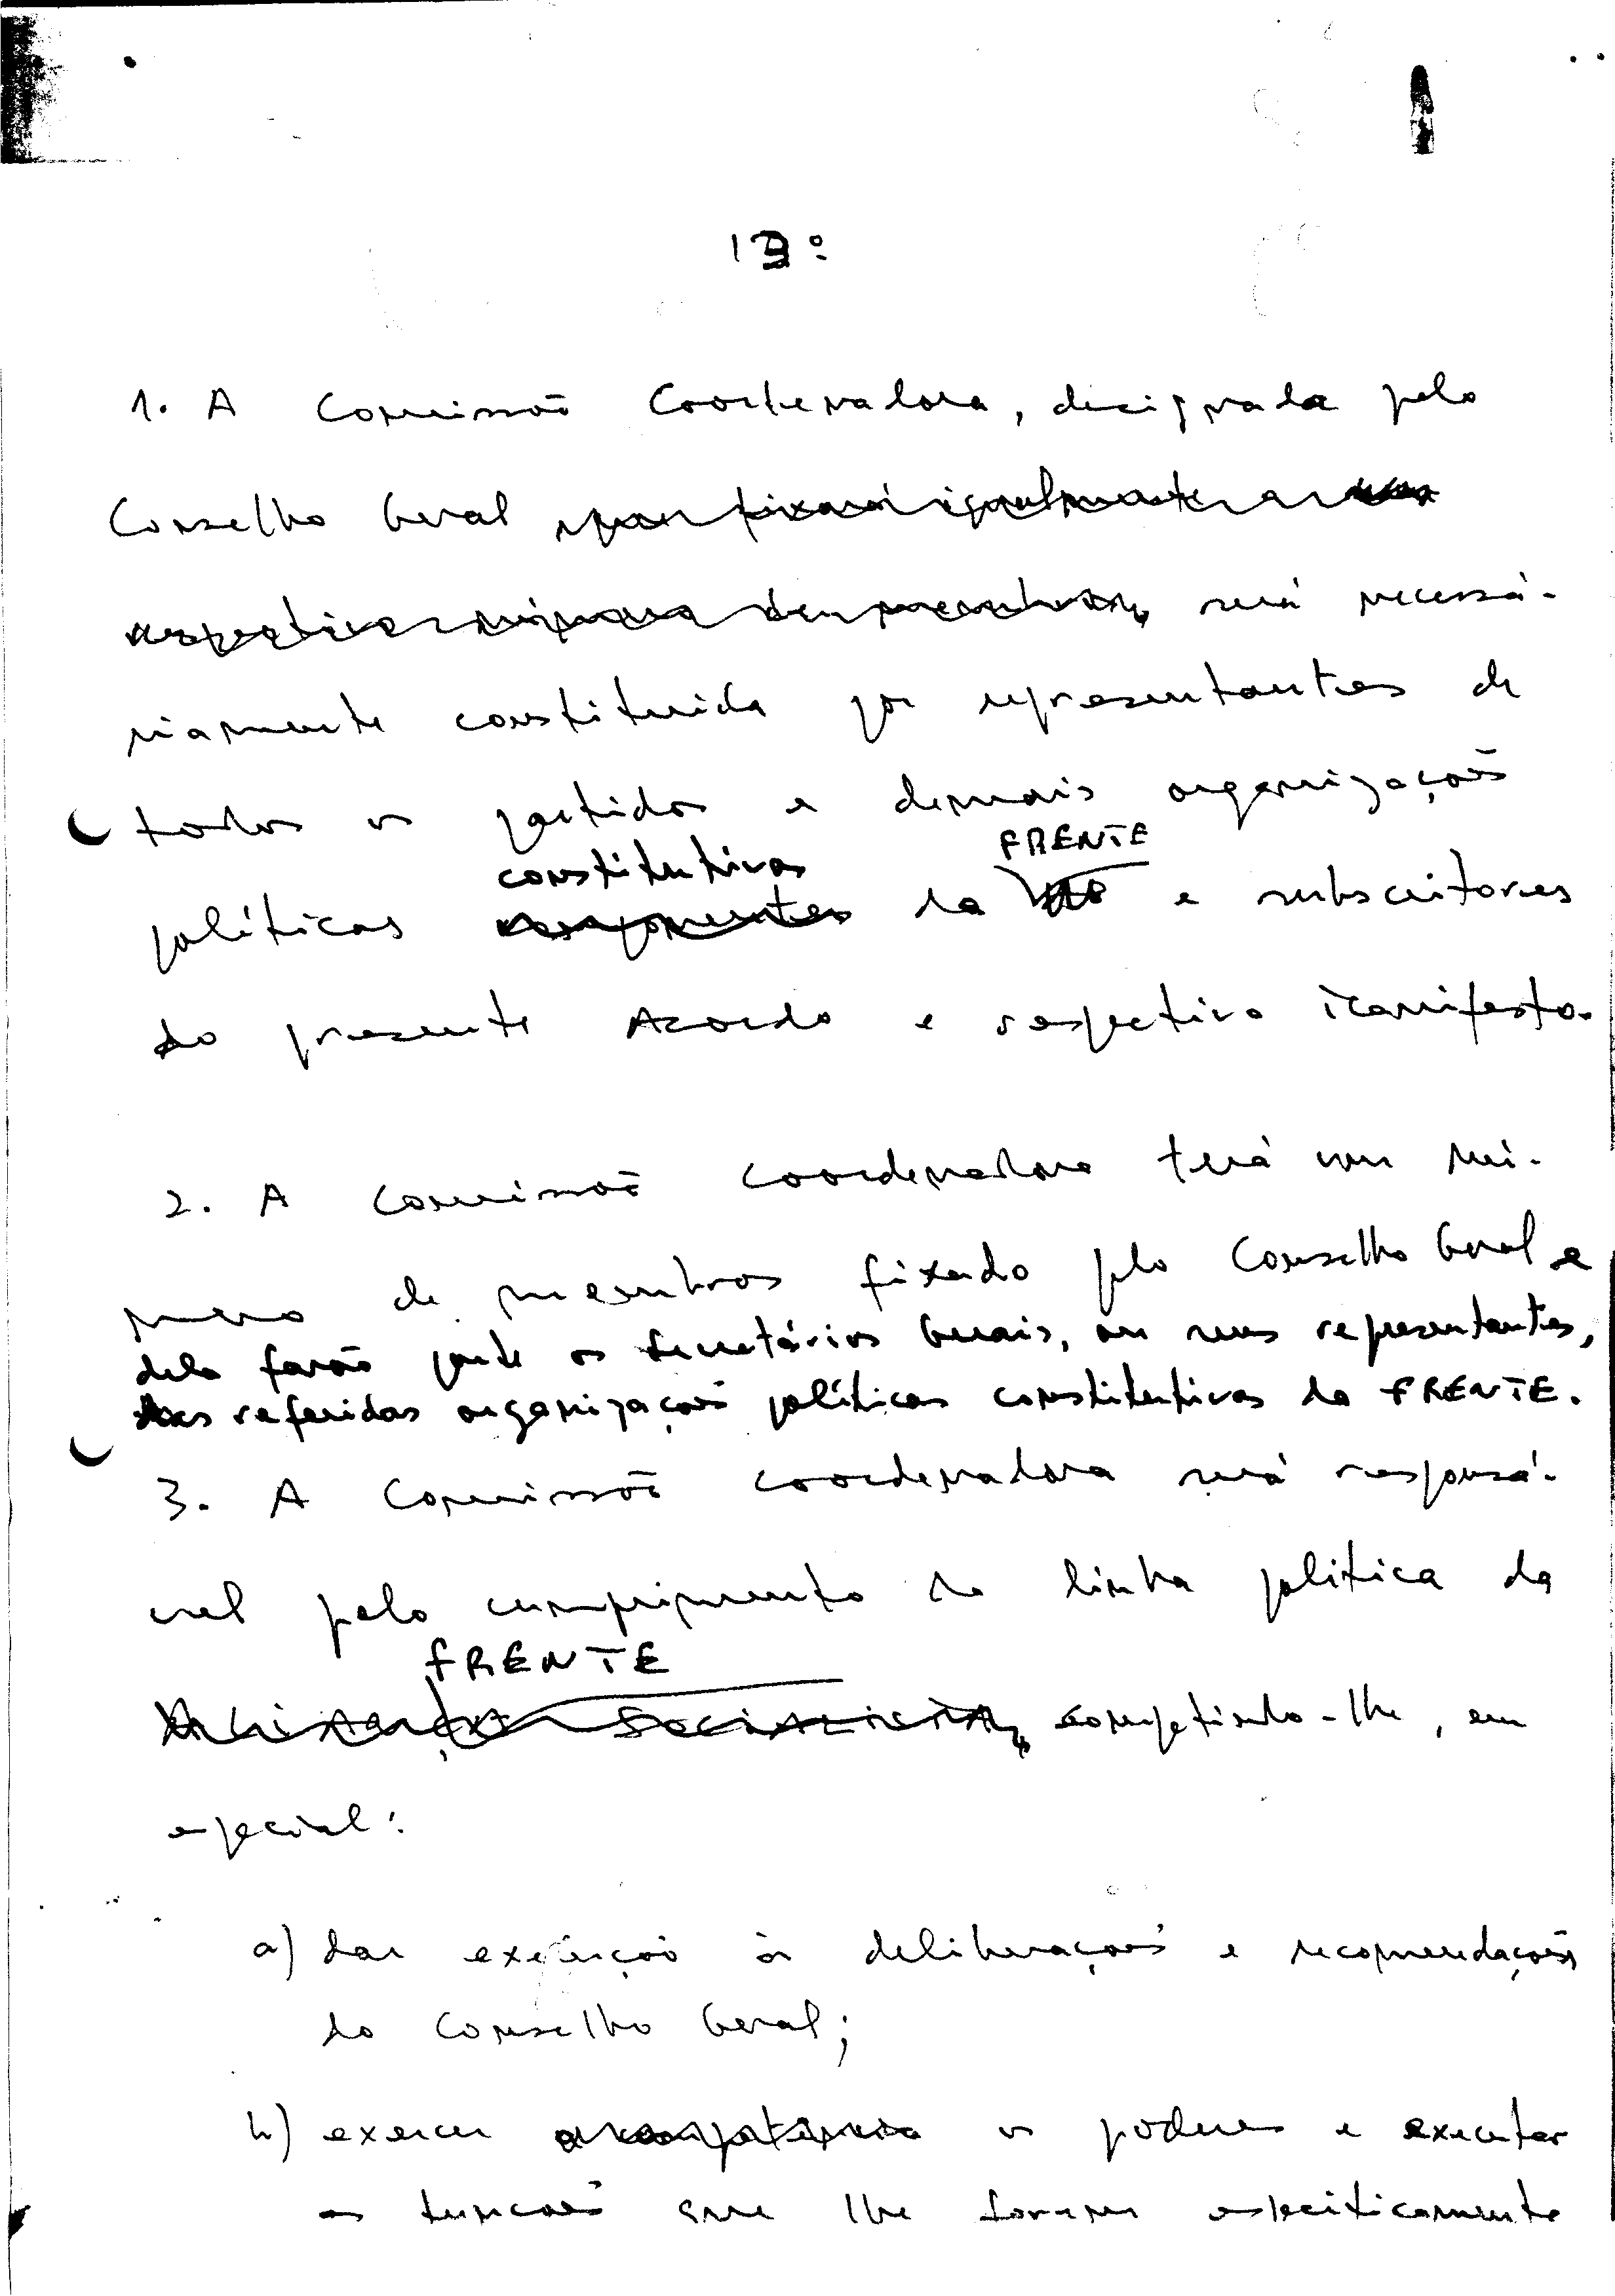 13º
1. A Comissão Coordenadora, designada pelo
Conselho Geral que fixará igualmente o seu
respectivo número de membros, será necessá-
riamente constituida por representantes de
todos os partidos e demais organizações
constitutivas FRENTE
políticas componentes da e subscritores
do presente Acordo e respectivo Manifesto.
2. A Comissão Coordenadora terá um nú-
mero de membros fixado pelo Conselho Geral e
dela farão parte os Secretários Gerais, ou seus representantes,
das referidas organizações políticas constitutivas da FRENTE.
3. A Comissão Coordenadora será responsá-
vel pelo cumprimento da linha politica da
FRENTE
ALIANÇA SOCIALISTA, competindo-lhe, em
especial:
a) dar execução às deliberações e recomendações
do Conselho Geral;
b) exercer a competência os poderes e executar
as funções que lhe forem especificamente